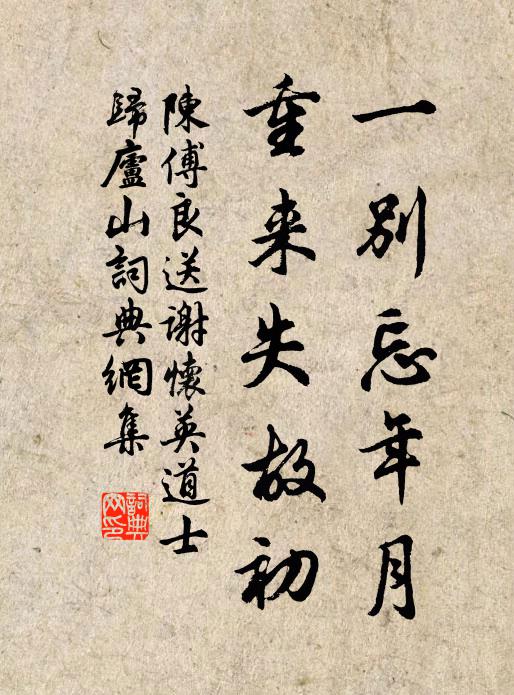 一别忘年月
重来失故初
陳傅良送謝懷英道士
歸廬山詞典網集
詞典网印